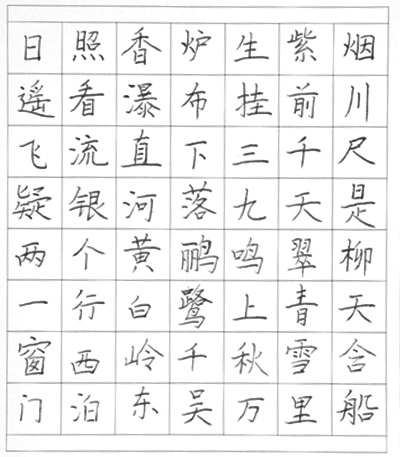 日照香炉生紫烟
遥看瀑布挂前川
飞流直下三千尺
疑银河落九天是
两个黄鹂鸣翠柳
一行白鹭上青天
窗西岭千秋雪含
门泊东吴万里船